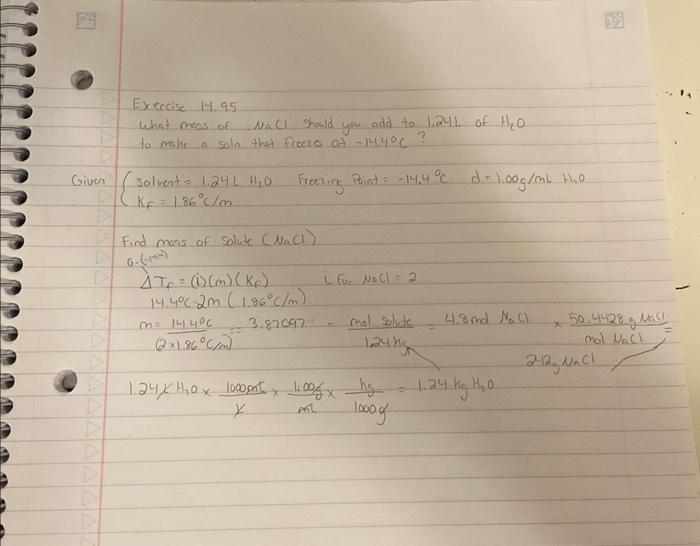 Exercise 14.95
What mass of NaCl should you add to 1.24L of H₂O
to make a soln that freezes at -14.4°C ?
Given { solvent = 1.24 L H₂O Freezing Point = -14.4°C d = 1.00g/mL H₂O
Kf = 1.86°C/m
Find mass of solute (NaCl)
0-(-14.4)
ΔTf = (i)(m)(Kf) i for NaCl = 2
14.4°C = 2m (1.86°C/m)
m = 14.4°C / (2×1.86°C/m) = 3.87097 = mol solute / 1.24 kg = 4.8 mol NaCl × 50.4428 g NaCl / mol NaCl =
242g NaCl
1.24 L H₂O × 1000 mL / L × 1.00g / mL × kg / 1000 g = 1.24 kg H₂O